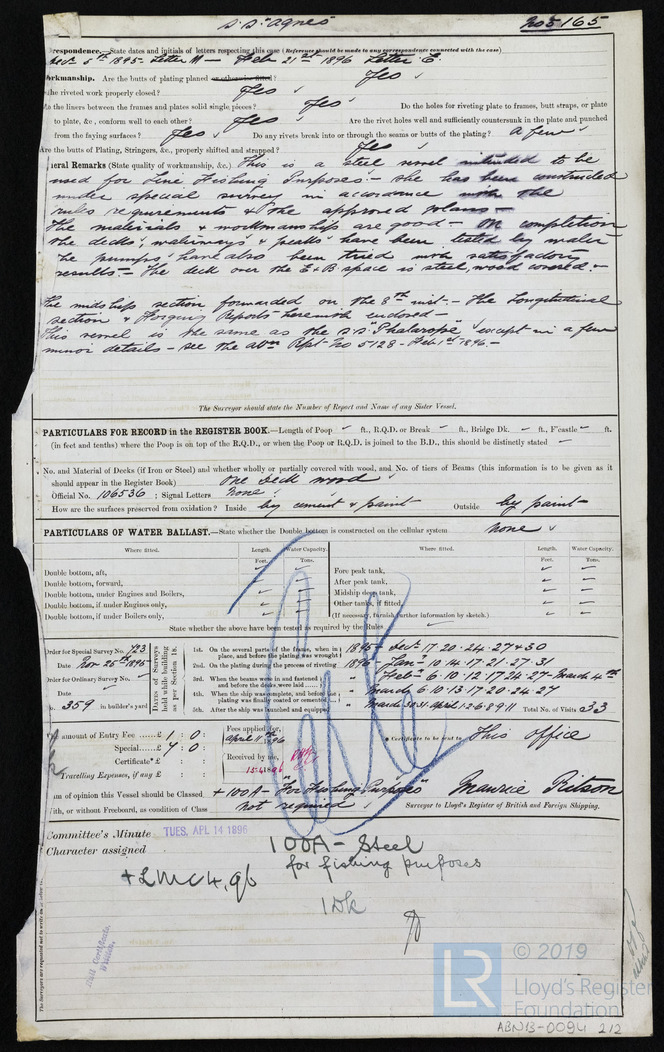 S.S. "Agnes"
No 5165
respondence.—State dates and initials of letters respecting this case (Reference should be made to any correspondence connected with the case)
Decr 5th 1895 - Letter M - Feb 21st 1896 Letter E.
orkmanship. Are the butts of plating planed or otherwise fitted? Yes
the riveted work properly closed? Yes
o the liners between the frames and plates solid single pieces? Yes Do the holes for riveting plate to frames, butt straps, or plate
to plate, &c., conform well to each other? Yes Are the rivet holes well and sufficiently countersunk in the plate and punched
from the faying surfaces? Yes Do any rivets break into or through the seams or butts of the plating? a few
Are the butts of Plating, Stringers, &c., properly shifted and strapped? Yes
eral Remarks (State quality of workmanship, &c.) This is a steel vessel intended to be
used for Line Fishing Purposes - she has been constructed
under special survey in accordance with the
rules requirements & the approved plans -
The materials & workmanship are good - On completion
the decks, waterways & peaks have been tested by water
the pumps have also been tried with satisfactory
results - The deck over the E & B space is steel, wood covered -
The midship section forwarded on the 8th inst - The Longitudinal
section & Forging Reports herewith enclosed -
This vessel is the same as the S.S. "Phalarope" except in a few
minor details - see the Rpt No 5128 - Feb 1st 1896 -
The Surveyor should state the Number of Report and Name of any Sister Vessel.
PARTICULARS FOR RECORD in the REGISTER BOOK.—Length of Poop - ft., R.Q.D. or Break - ft., Bridge Dk. - ft., F'castle - ft.
(in feet and tenths) where the Poop is on top of the R.Q.D., or when the Poop or R.Q.D. is joined to the B.D., this should be distinctly stated -
No. and Material of Decks (if Iron or Steel) and whether wholly or partially covered with wood, and No. of tiers of Beams (this information is to be given as it
should appear in the Register Book) One Deck wood
Official No. 106536 ; Signal Letters None
How are the surfaces preserved from oxidation? Inside by cement & paint Outside by paint -
PARTICULARS OF WATER BALLAST.—State whether the Double bottom is constructed on the cellular system None
Where fitted. Length. Water Capacity. Where fitted. Length. Water Capacity.
Feet. Tons. Feet. Tons.
Double bottom, aft, - - Fore peak tank, - -
Double bottom, forward, - - After peak tank, - -
Double bottom, under Engines and Boilers, - - Midship deep tank, - -
Double bottom, if under Engines only, - - Other tanks, if fitted, - -
Double bottom, if under Boilers only, - - (If necessary, furnish further information by sketch.)
State whether the above have been tested as required by the Rules -
Order for Special Survey No. 723
Date Nov 25th 1895
Order for Ordinary Survey No. -
Date -
o. 359 in builder's yard
Dates of Surveys held while building as per Section 18.
1st. On the several parts of the frame, when in place, and before the plating was wrought 1895 - Decr 17. 20. 24. 27 & 30
2nd. On the plating during the process of riveting 1896 - Jan - 10. 14. 17. 21. 27. 31
3rd. When the beams were in and fastened, and before the decks were laid " Feb - 6. 10. 12. 17. 24. 27 - March 4th
4th. When the ship was complete, and before the plating was finally coated or cemented " March 6. 10. 13. 17. 20. 24. 27
5th. After the ship was launched and equipped " March 30. 31 April 1. 2. 6. 8. 9. 11 Total No. of Visits 33
amount of Entry Fee £ 1 : 0 :
Special £ 7 : 0 :
Certificate* £ :
Travelling Expenses, if any £ :
Fees applied for,
April 11th 96
Received by me,
15.4.1896
* Certificate to be sent to This office
m of opinion this Vessel should be Classed + 100A - "For Fishing Purposes"
Maurice Ritson
ith, or without Freeboard, as condition of Class not required
Surveyor to Lloyd's Register of British and Foreign Shipping.
Committee's Minute TUES. APL 14 1896
Character assigned 100A - Steel
for fishing purposes
+ LMC 4.96
1 Dk
The Surveyors are requested not to write on
© 2019
LR
Lloyd's Register
Foundation
ABN13-0094 212